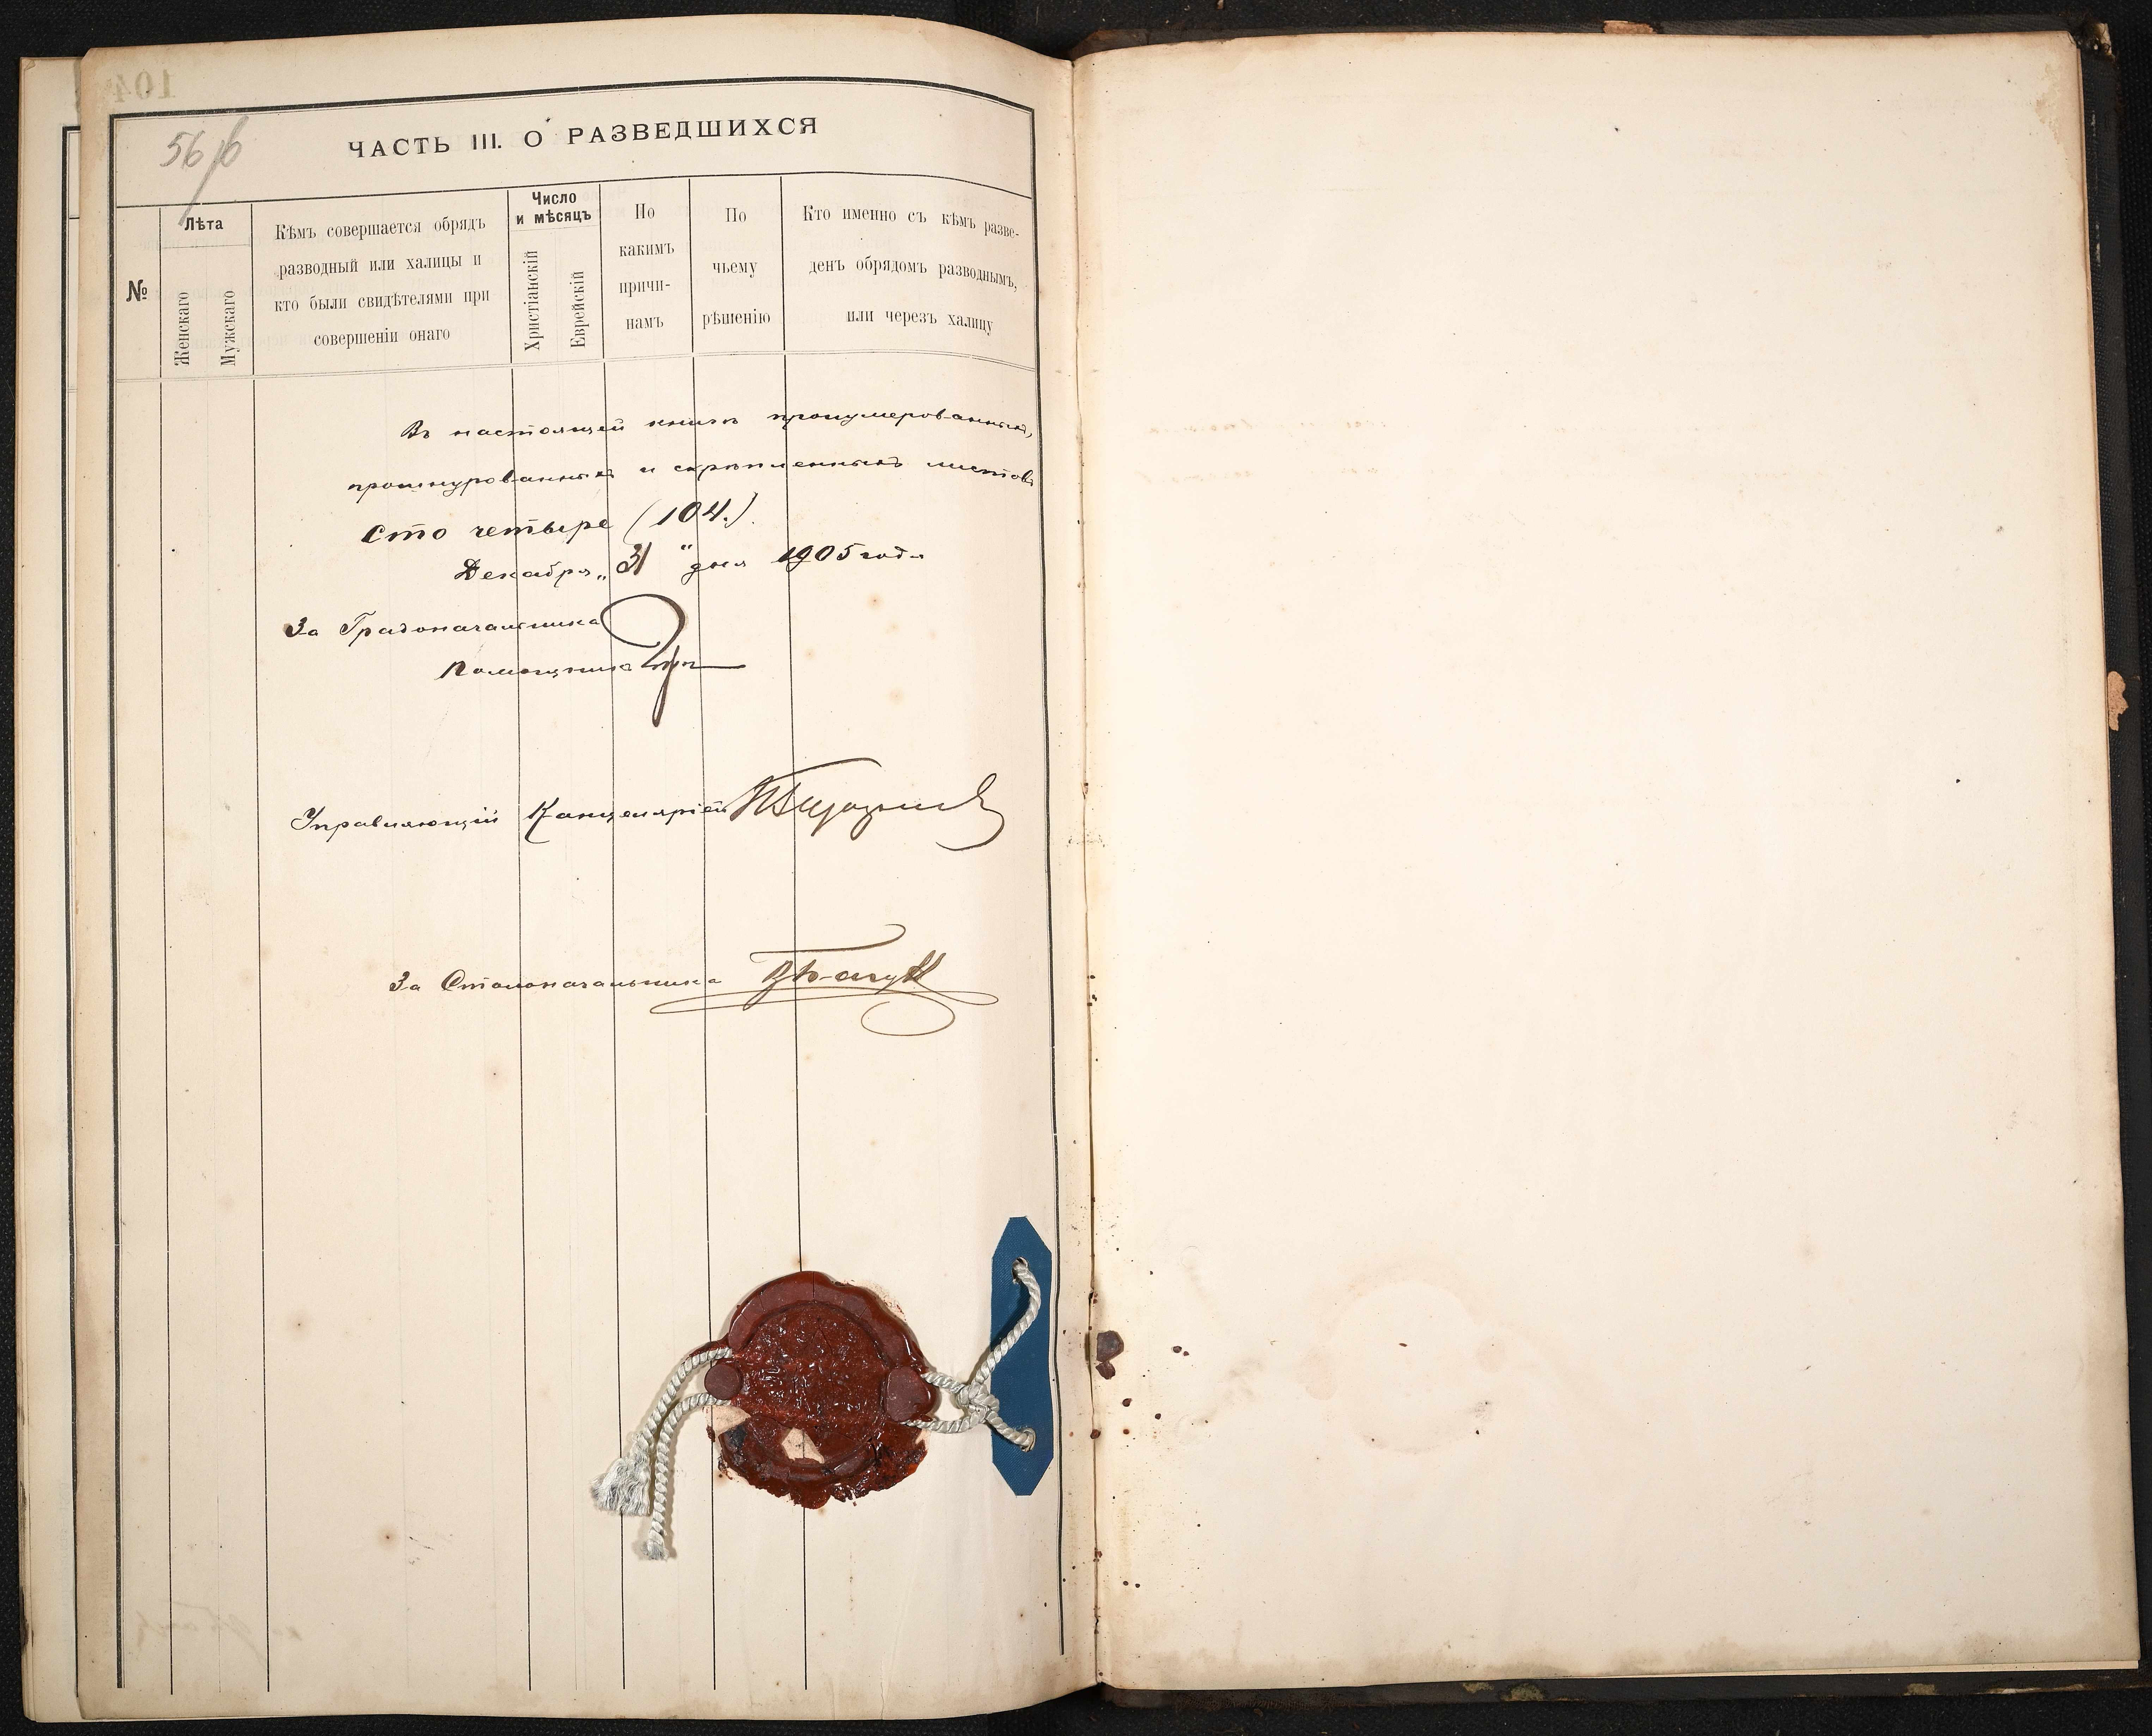 104
56/б
ЧАСТЬ III. О РАЗВЕДШИХСЯ
№
Лѣта
Женскаго
Мужскаго
Кѣмъ совершается обрядъ
разводный или халицы и
кто были свидѣтелями при
совершеніи онаго
Число
и мѣсяцъ
Христіанскій
Еврейскій
По
какимъ
причи-
намъ
По
чьему
рѣшенію
Кто именно съ кѣмъ разве-
денъ обрядомъ разводнымъ,
или черезъ халицу
Въ настоящей книгѣ пронумерованныхъ,
прошнурованныхъ и скрѣпленныхъ листовъ
сто четыре (104.).
Декабря „31" дня 1905 года
За Градоначальника
Помощникъ
Управляющій Канцеляріей
За Столоначальника